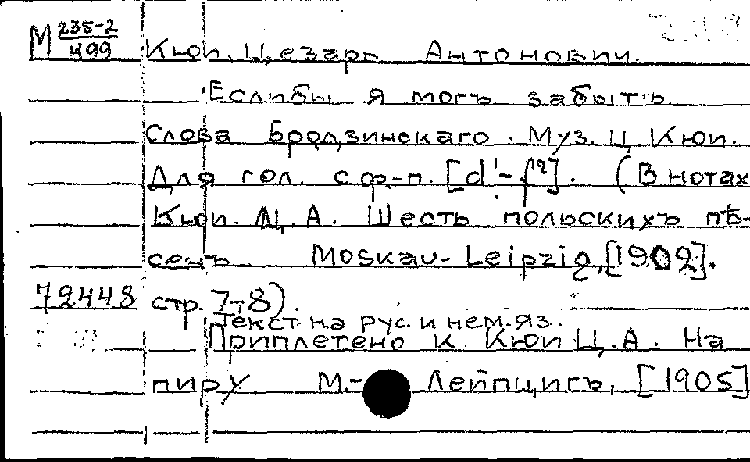 М 235-2
499
Кюи, Цезарь Антонович.
Еслибы я могъ забыть
Слова Бродзинскаго. Муз. Ц. Кюи.
Для гол. с ф-п. [d'-f²]. (В нотах
Кюи. Ц.А. Шесть польскихъ пѣ-
сенъ Moskau-Leipzig, [1902].
72448 стр. 7-8).
Текст на рус. и нем. яз.
Приплетено к Кюи Ц.А. На
пиру М.- Лейпцигъ, [1905]